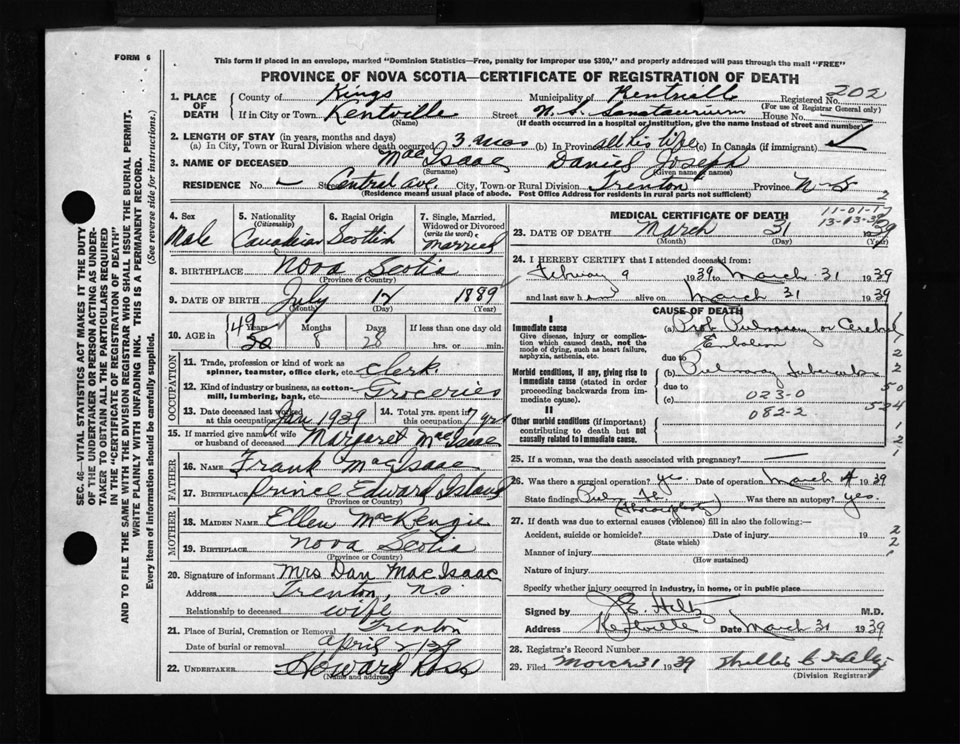 FORM 6
This form if placed in an envelope, marked "Dominion Statistics—Free, penalty for improper use $300," and properly addressed will pass through the mail "FREE"
PROVINCE OF NOVA SCOTIA—CERTIFICATE OF REGISTRATION OF DEATH
SEC. 46—VITAL STATISTICS ACT MAKES IT THE DUTY
OF THE UNDERTAKER OR PERSON ACTING AS UNDER-
TAKER TO OBTAIN ALL THE PARTICULARS REQUIRED
IN THE "CERTIFICATE OF REGISTRATION OF DEATH"
AND TO FILE THE SAME WITH THE DIVISION REGISTRAR WHO SHALL ISSUE THE BURIAL PERMIT.
WRITE PLAINLY WITH UNFADING INK. THIS IS A PERMANENT RECORD.
Every item of information should be carefully supplied. (See reverse side for instructions.)
1. PLACE OF DEATH
County of Kings Municipality of Kentville Registered No. 202
(For use of Registrar General only)
If in City or Town Kentville Street N.S. Sanatorium House No.
(Name) (If death occurred in a hospital or institution, give the name instead of street and number)
2. LENGTH OF STAY (in years, months and days)
(a) In City, Town or Rural Division where death occurred 3 mos (b) In Province all his life (c) In Canada (if immigrant)
3. NAME OF DECEASED Mac Isaac Daniel Joseph
(Surname) (Given name or names)
RESIDENCE No. Street Central ave. City, Town or Rural Division Trenton Province N-S
(Residence means usual place of abode. Post Office Address for Residents in rural parts not sufficient)
4. Sex Male
5. Nationality (Citizenship) Canadian
6. Racial Origin Scottish
7. Single, Married, Widowed or Divorced (write the word) Married
8. BIRTHPLACE Nova Scotia
(Province or Country)
9. DATE OF BIRTH July 12 1889
(Month) (Day) (Year)
10. AGE in 49 Years 8 Months 28 Days If less than one day old
hrs. or min.
OCCUPATION
11. Trade, profession or kind of work as spinner, teamster, office clerk, etc. clerk
12. Kind of industry or business, as cotton-mill, lumbering, bank, etc. Groceries
13. Date deceased last worked at this occupation Jan 1939
14. Total yrs. spent in this occupation 7 yrs
15. If married give name of wife or husband of deceased Margaret MacIsaac
FATHER
16. NAME Frank MacIsaac
17. BIRTHPLACE Prince Edward Island
(Province or Country)
MOTHER
18. MAIDEN NAME Ellen McKenzie
19. BIRTHPLACE Nova Scotia
(Province or Country)
20. Signature of informant Mrs Dan MacIsaac
Address Trenton, N.S
Relationship to deceased wife
21. Place of Burial, Cremation or Removal Trenton
Date of burial or removal April 2/39
22. UNDERTAKER Howard Ross
(Name and address)
MEDICAL CERTIFICATE OF DEATH
23. DATE OF DEATH March 31 1939
(Month) (Day) (Year)
24. I HEREBY CERTIFY that I attended deceased from:
February 9 1939 to March 31 1939
and last saw him alive on March 31 1939
CAUSE OF DEATH
I
Immediate cause
Give disease, injury or complication which caused death, not the mode of dying, such as heart failure, asphyxia, asthenia, etc.
(a) Prob. Pulmonary or Cerebral Embolism
due to
Morbid conditions, if any, giving rise to immediate cause (stated in order proceeding backwards from immediate cause).
(b) Pulmonary
due to
023-0
(c)
II
082-2
Other morbid conditions (if important) contributing to death but not causally related to immediate cause.
25. If a woman, was the death associated with pregnancy?
26. Was there a surgical operation? yes Date of operation March 1939
State findings Was there an autopsy? yes.
27. If death was due to external causes (violence) fill in also the following:—
Accident, suicide or homicide? Date of injury 19
(State which)
Manner of injury
(How sustained)
Nature of injury
Specify whether injury occurred in industry, in home, or in public place
Signed by J.E. Hiltz M.D.
Address Kentville Date March 31 1939
28. Registrar's Record Number
29. Filed March 31 1939
(Division Registrar)